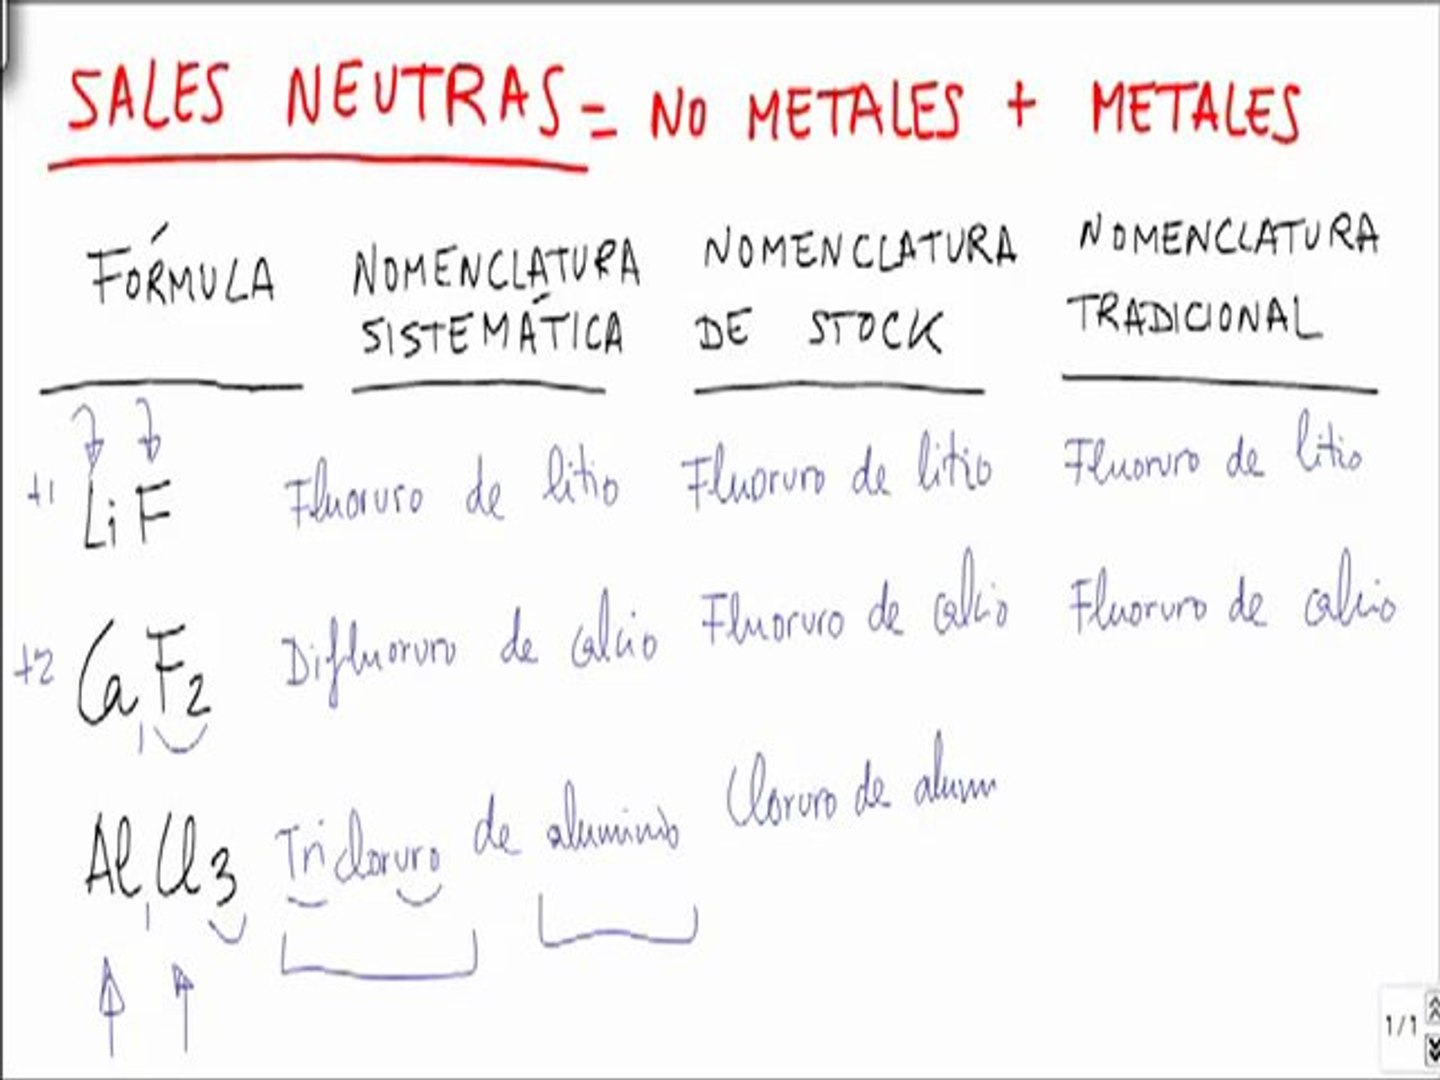 SALES NEUTRAS = NO METALES + METALES
FÓRMULA
NOMENCLATURA
SISTEMÁTICA
NOMENCLATURA
DE STOCK
NOMENCLATURA
TRADICIONAL
+1 LiF Fluoruro de litio Fluoruro de litio Fluoruro de litio
+2 CaF2 Difluoruro de calcio Fluoruro de calcio Fluoruro de calcio
AlCl3 Tricloruro de aluminio Cloruro de alum
1/1